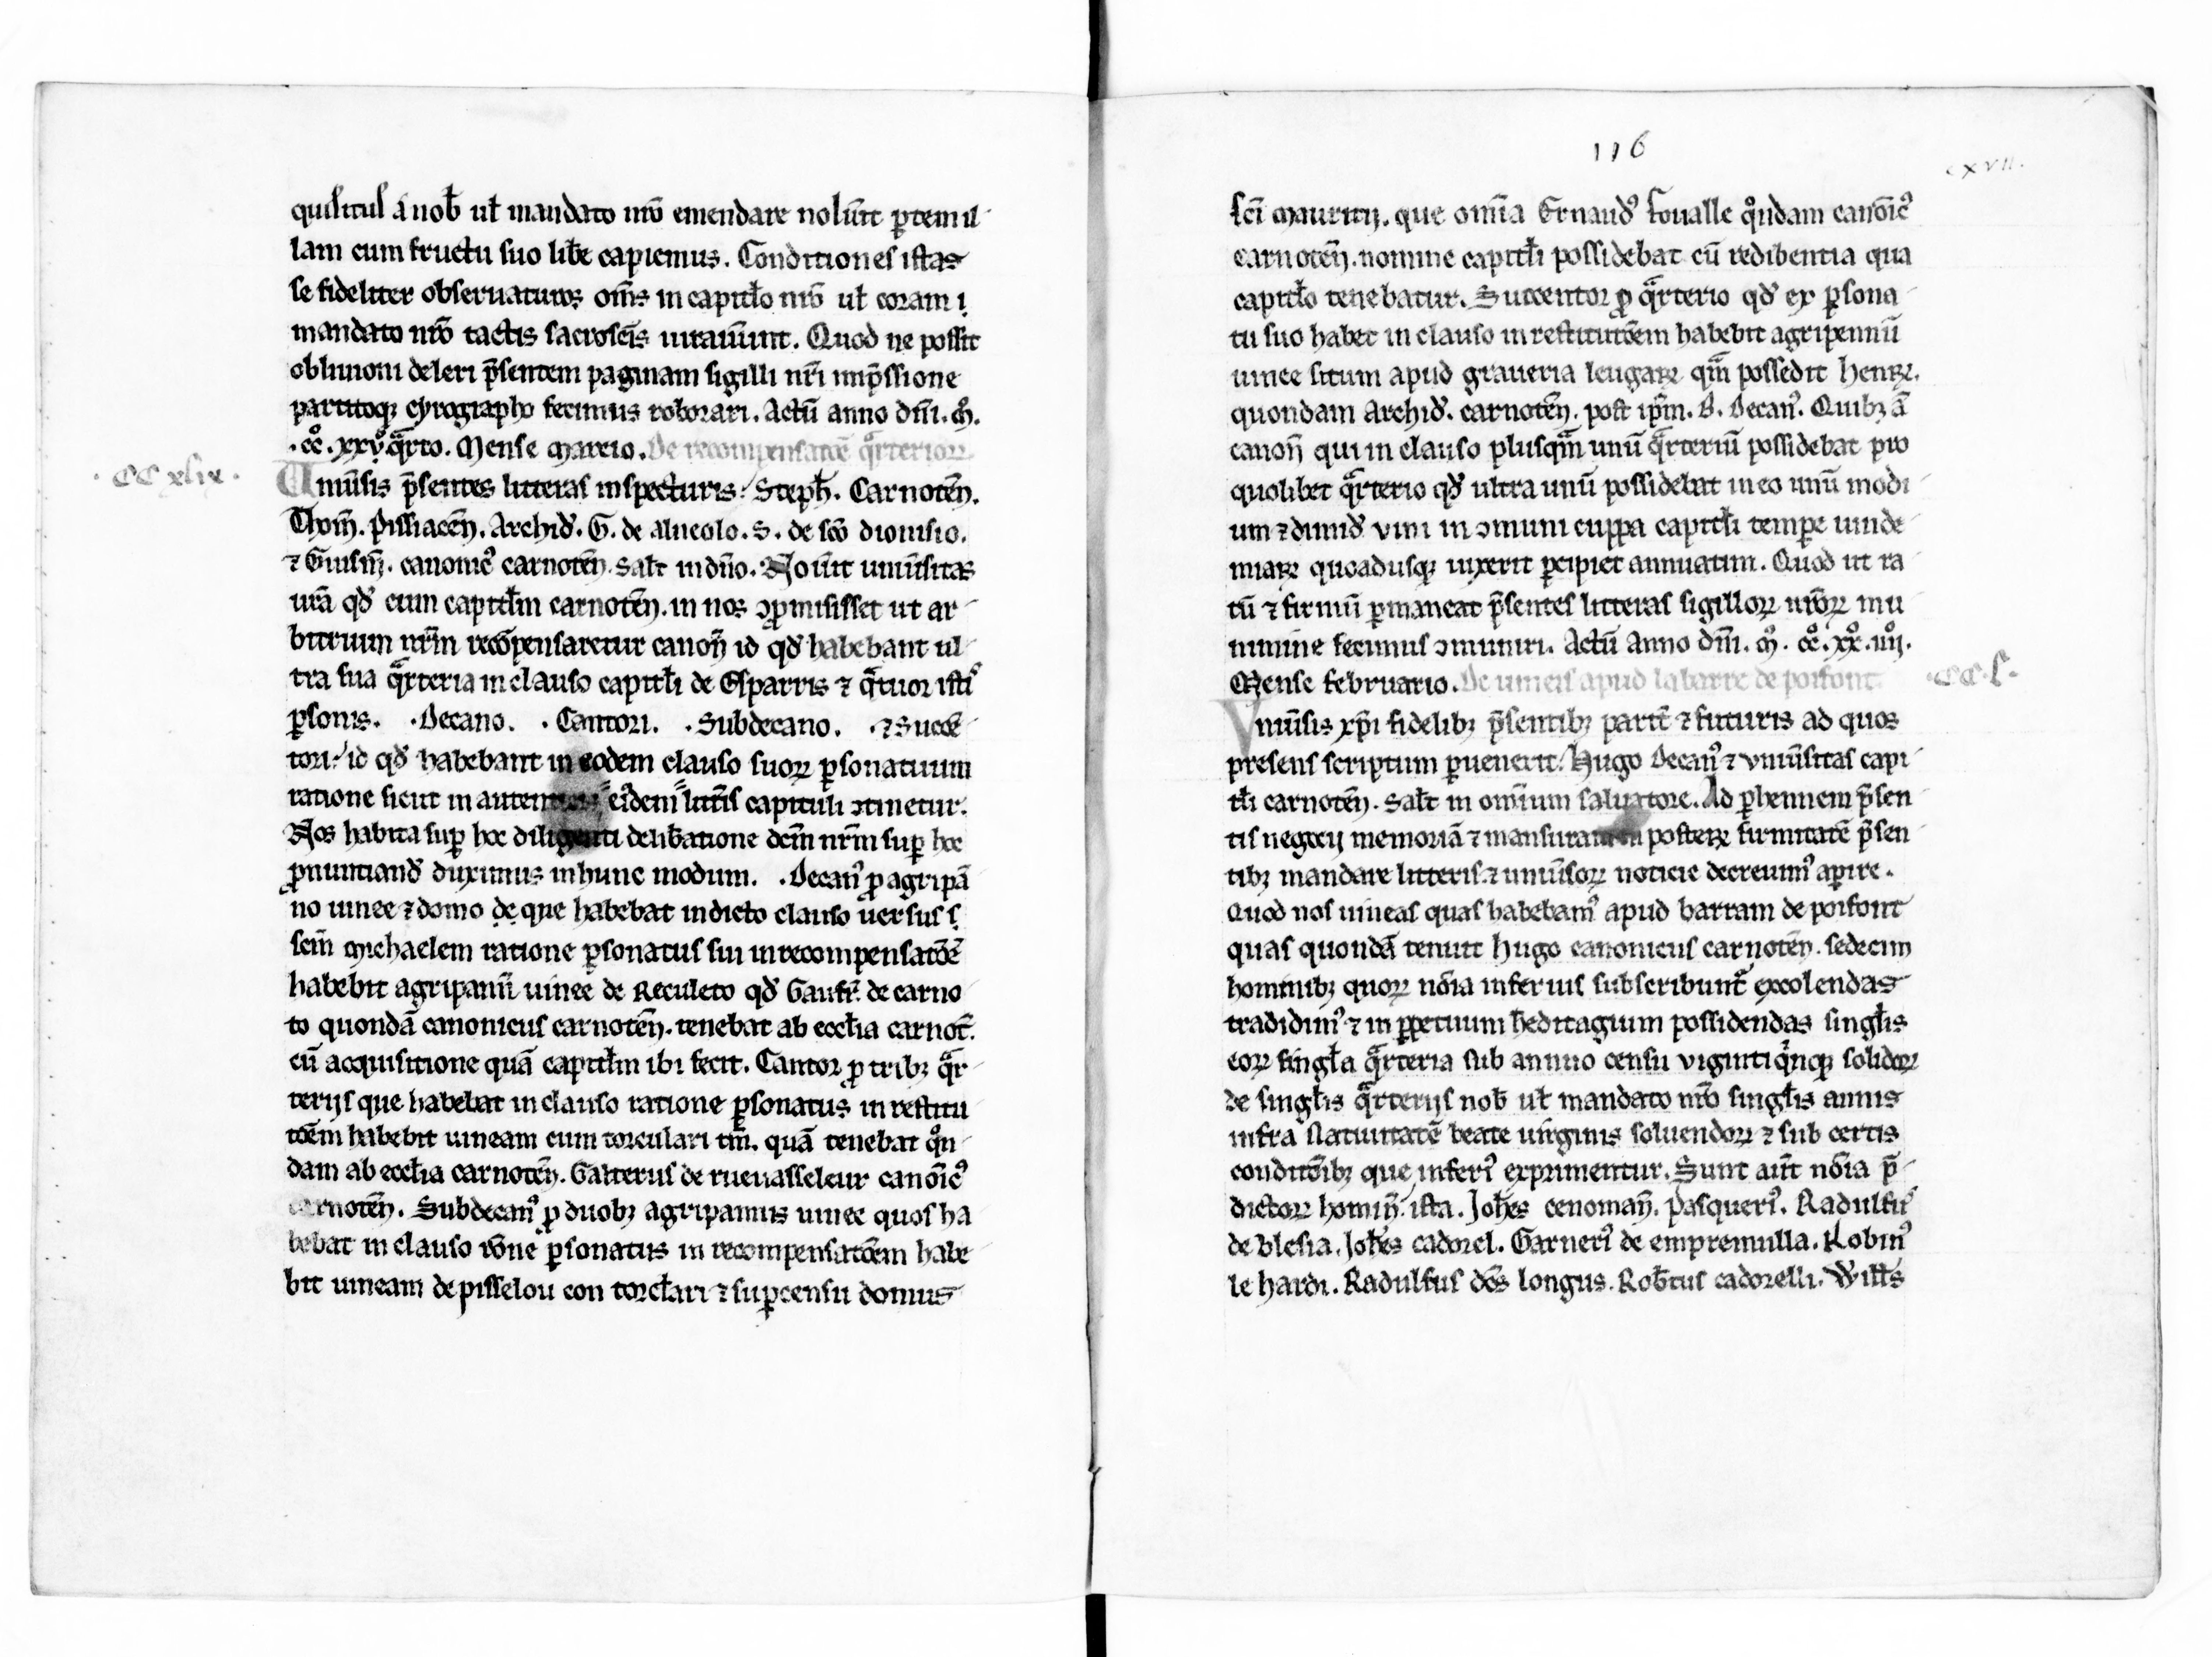 quisitus a nob̄ ul̄ mandato nr̄o emendare noluīt ꝑtem il
lam cum fructu suo lib̄e capiemus. Conditiones istas
se fideliter obseruaturoꝝ om̄s in capitl̄o nr̄o ul̄ coram
mandato nr̄o tactis sacrosc̄is iurauīunt. Quod ne possit
obliuioni deleri p̄sentem paginam sigilli nr̄i imp̄ssione
partitoqꝫ cyrographo fecimus roborari. Actū anno dn̄i. M̊.
.cc̊.xxv̊.qͣrto. Mense marcio. De recompensatōē qͣrteriorꝝ
.CC xlix.
Vniūsis p̄sentes litteras inspecturis. Steph̄. Carnotēn̄.
Thom̄. Pissiacēn̄. Archid̄. G. de alueolo. S. de sc̄o dionisio.
⁊ Guism̄. canonic᷒ carnotēn̄. salt̄ in dn̄o. Nouīt uniūsitas
ur̄a qd̄ cum capitl̄m carnotēn̄. in nos ꝯpromisisset ut ar
bitrium nr̄m recōpensaretur canon̄ id qd̄ habebant ul
tra sua qͣrteria in clauso capitl̄i de Esparris ⁊ qͣtuor isti᷒
ꝑsonis. .Decano. .Cantori. .Subdecano. .⁊ Succē
tori. id qd̄ habebant in eodem clauso suorꝝ ꝑsonatuum
ratione sicut in eiꝰdem litt̄is capituli ꝯtinetur.
Nos habita suꝑ hoc diligenti delib̄atione dc̄m nr̄m suꝑ hoc
ꝓnuntiand̄ duximus in hunc modum. .Decan᷒ ꝓ agripā
no uinee ⁊ domo de que habebat in dicto clauso uersus s
sc̄m Michaelem ratione ꝑsonatus sui in recompensatōē
habebit agripanū uinee de Reculeto qd̄ Gaufr̄. de carno
to quondā canonicus carnotēn̄. tenebat ab eccl̄ia carnot̄.
cū acquisitione quā capitl̄m ibi fecit. Cantor ꝓ tribꝫ qͣr
terijs que habebat in clauso ratione ꝑsonatus in restitu
tōēm habebit uineam cum torculari tm̄. quā tenebat q̊n
dam ab eccl̄ia carnotēn̄. Galterus de rueuasseleur canōic᷒
carnotēn̄. Subdecan᷒ ꝓ duobꝫ agripannis uinee quos ha
bebat in clauso rōne ꝑsonatus in recompensatōēm habe
bit uineam de pisselou con torcl̄ari ⁊ suꝑcensu domus
116
cxvii.
sc̄i Mauritij. que om̄ia Ernaud᷒ foualle q̊ndam canōic᷒
carnotēn̄. nomine capitl̄i possidebat cū redibentia qua
capitl̄o tenebatur. Succentor ꝓ qͣrterio qd̄ ex ꝑsona
tu suo habet in clauso in restitutōēm habebit agripennū
uinee situm apud graueria leugarꝝ qm̄ possedit Henrꝝ.
quondam Archid̄. carnotēn̄. post ip̄m. B. Decan᷒. Quibꝫ ā
canon̄ qui in clauso plusqͣm unū qͣrteriū possidebat pro
quolibet qͣrterio qd̄ ultra unū possidebat in eo unū modi
um ⁊ dimid̄ vini in ꝯmuni cuppa capitl̄i tempe uinde
miarꝝ quoadusqꝫ uixerit ꝑcipiet annuatim. Quod ut ra
tū ⁊ firmū ꝑmaneat p̄sentes litteras sigillorꝝ nr̄orꝝ mu
nimine fecimus ꝯmuniri. Actū Anno dn̄i. M̊. cc̊. xx̊. iiij̊.
Mense februario. De uineis apud la barre de poifont.
.CC.L.
Vniūsis xp̄i fidelibꝫ p̄sentibꝫ parit̄ ⁊ futuris ad quos
presens scriptum ꝑuenerit. Hugo Decan᷒ ⁊ vniūsitas capi
tl̄i carnotēn̄. Salt̄ in omīum saluatore. Ad ꝑhennem p̄sen
tis negocij memoriā ⁊ mansuram in posterꝝ firmitatē p̄sen
tibꝫ mandare litteris ⁊ uniūsorꝝ noticie decreuim᷒ aꝑire.
Quod nos uineas quas habebam᷒ apud barram de poifont
quas quondā tenuit hugo canonicus carnotēn̄. sedecim
hominibꝫ quorꝝ nōia inferius subscribunt᷑ excolendas
tradidim᷒ ⁊ in ꝑpetuum h̄editagium possidendas singl̄is
eorꝝ singl̄a qͣrteria sub annuo censu viginti qͥnqꝫ solidorꝝ
de singl̄is qͣrterijs nob̄ ul̄ mandato nr̄o singl̄is annis
infra Natiuitatē beate uirginis soluendorꝝ ⁊ sub certis
conditōibꝫ que inferi᷒ exprimentur. Sunt aūt nōia p̄
dictorꝝ homin̄. ista. Joh̄es cenoman̄. Pasqueri᷒. Radulfu᷒
de blesia. Joh̄es cadorel. Garneri᷒ de empremulla. Robin᷒
le hardi. Radulfus dc̄s longus. Rob̄tus cadorelli. Will̄s